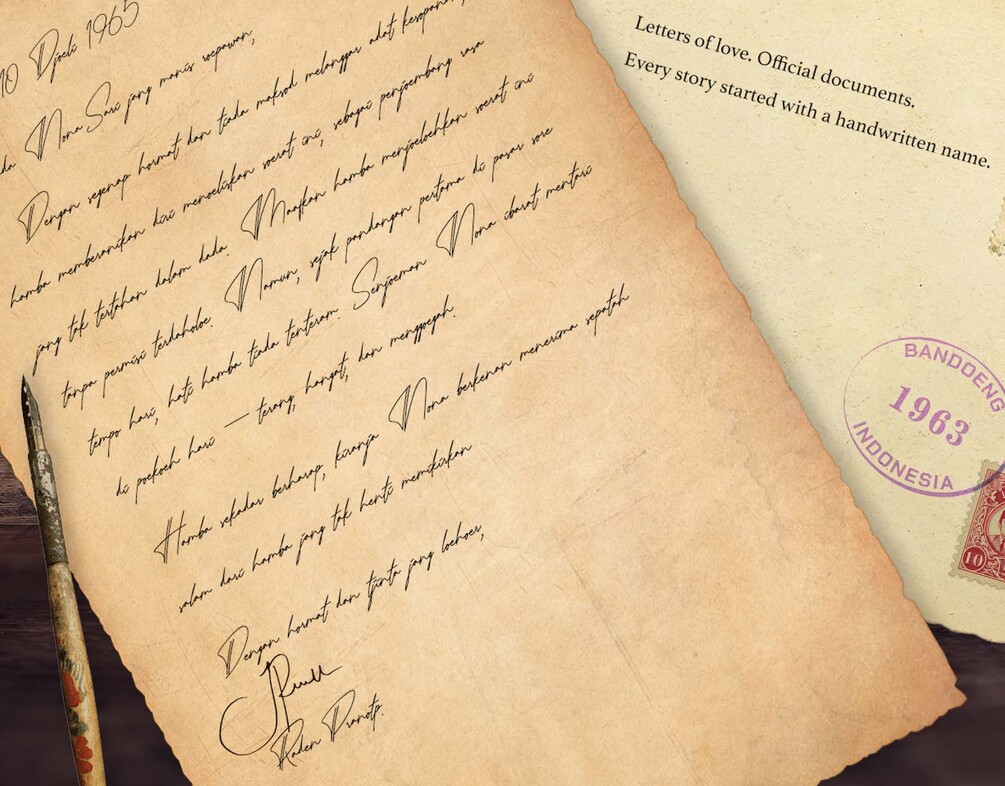 10 Djoeli 1965
Nona Sari jang manis soepawan,
Dengan segenap hormat dan tiada maksod melanggar adat kesopanan,
hamba memberanikan diri menoeliskan soerat ini, sebagai penjoembang rasa
jang tak tertahan dalam dada. Maafkan hamba menjoeloehkan soerat ini
tanpa permisi terdahoeloe. Namun, sejak pandangan pertama di pasar sore
tempo hari, hati hamba tiada tenteram. Senjoeman Nona ibarat mentari
di poekoeh hari — terang, hangat, dan menggoegah.
Hamba sekadar berharap, kiranja Nona berkenan menerima sepatah
salam dari hamba jang tak henti memikirkan
Dengan hormat dan tjinta jang loehoer,
Raden Pranoto.
Letters of love. Official documents.
Every story started with a handwritten name.
BANDOENG
1963
INDONESIA
10